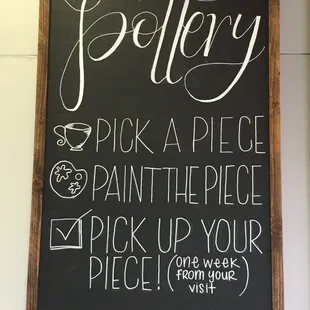 pottery
PICK A PIECE
PAINT THE PIECE
PICK UP YOUR
PIECE! (one week
from your
visit)